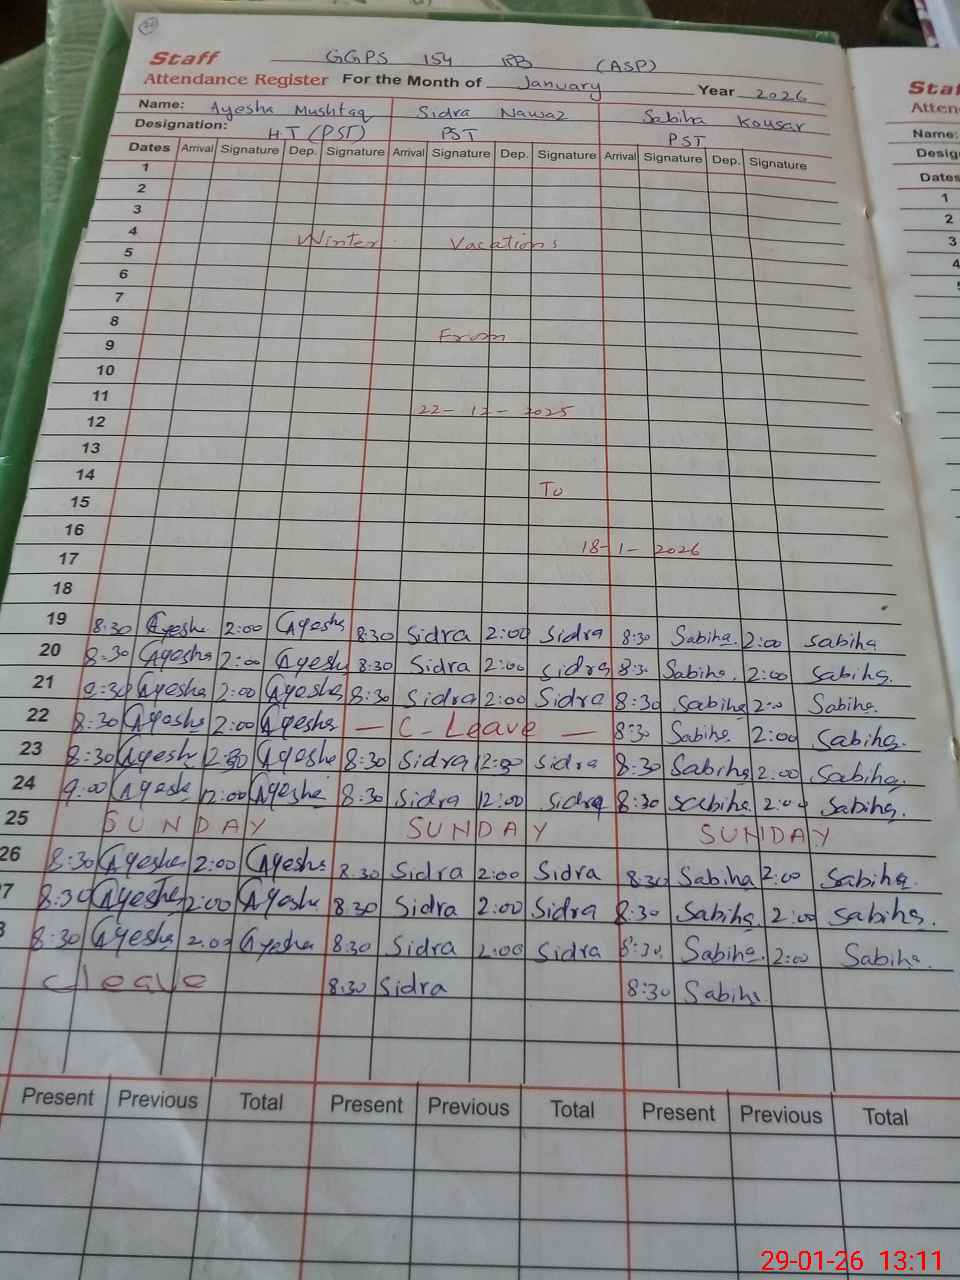 Staff GGPS 154 RB (ASP)
Attendance Register For the Month of January Year 2026
Name: Ayesha Mushtaq Sidra Nawaz Sabiha Kousar
Designation: H.T (PST) PST PST
Dates Arrival Signature Dep. Signature Arrival Signature Dep. Signature Arrival Signature Dep. Signature
1
2
3
4 Winter Vacations
5
6
7
8 From
9
10
11
22-12-2025
12
13
14
15 To
16
17 18-1-2026
18
19 8:30 Ayesha 2:00 Ayesha 8:30 Sidra 2:00 Sidra 8:30 Sabiha 2:00 Sabiha
20 8:30 Ayesha 2:00 Ayesha 8:30 Sidra 2:00 Sidra 8:30 Sabiha 2:00 Sabiha
21 8:30 Ayesha 2:00 Ayesha 8:30 Sidra 2:00 Sidra 8:30 Sabiha 2:00 Sabiha
22 8:30 Ayesha 2:00 Ayesha — C-Leave — 8:30 Sabiha 2:00 Sabiha
23 8:30 Ayesha Ayesha 8:30 Sidra Sidra 8:30 Sabiha 2:00 Sabiha
24 9:00 Ayesha 12:00 Ayesha 8:30 Sidra 12:00 Sidra 8:30 Sabiha 2:00 Sabiha
25 SUNDAY SUNDAY SUNDAY
26 8:30 Ayesha 2:00 Ayesha 8:30 Sidra 2:00 Sidra 8:30 Sabiha 2:00 Sabiha
7 8:30 Ayesha 2:00 Ayesha 8:30 Sidra 2:00 Sidra 8:30 Sabiha 2:00 Sabiha
8 8:30 Ayesha 2:00 Ayesha 8:30 Sidra 2:00 Sidra 8:30 Sabiha 2:00 Sabiha
C leave 8:30 Sidra 8:30 Sabiha
Present Previous Total Present Previous Total Present Previous Total
Staf
Atten
Name:
Desig
Dates
1
2
3
4
29-01-26 13:11